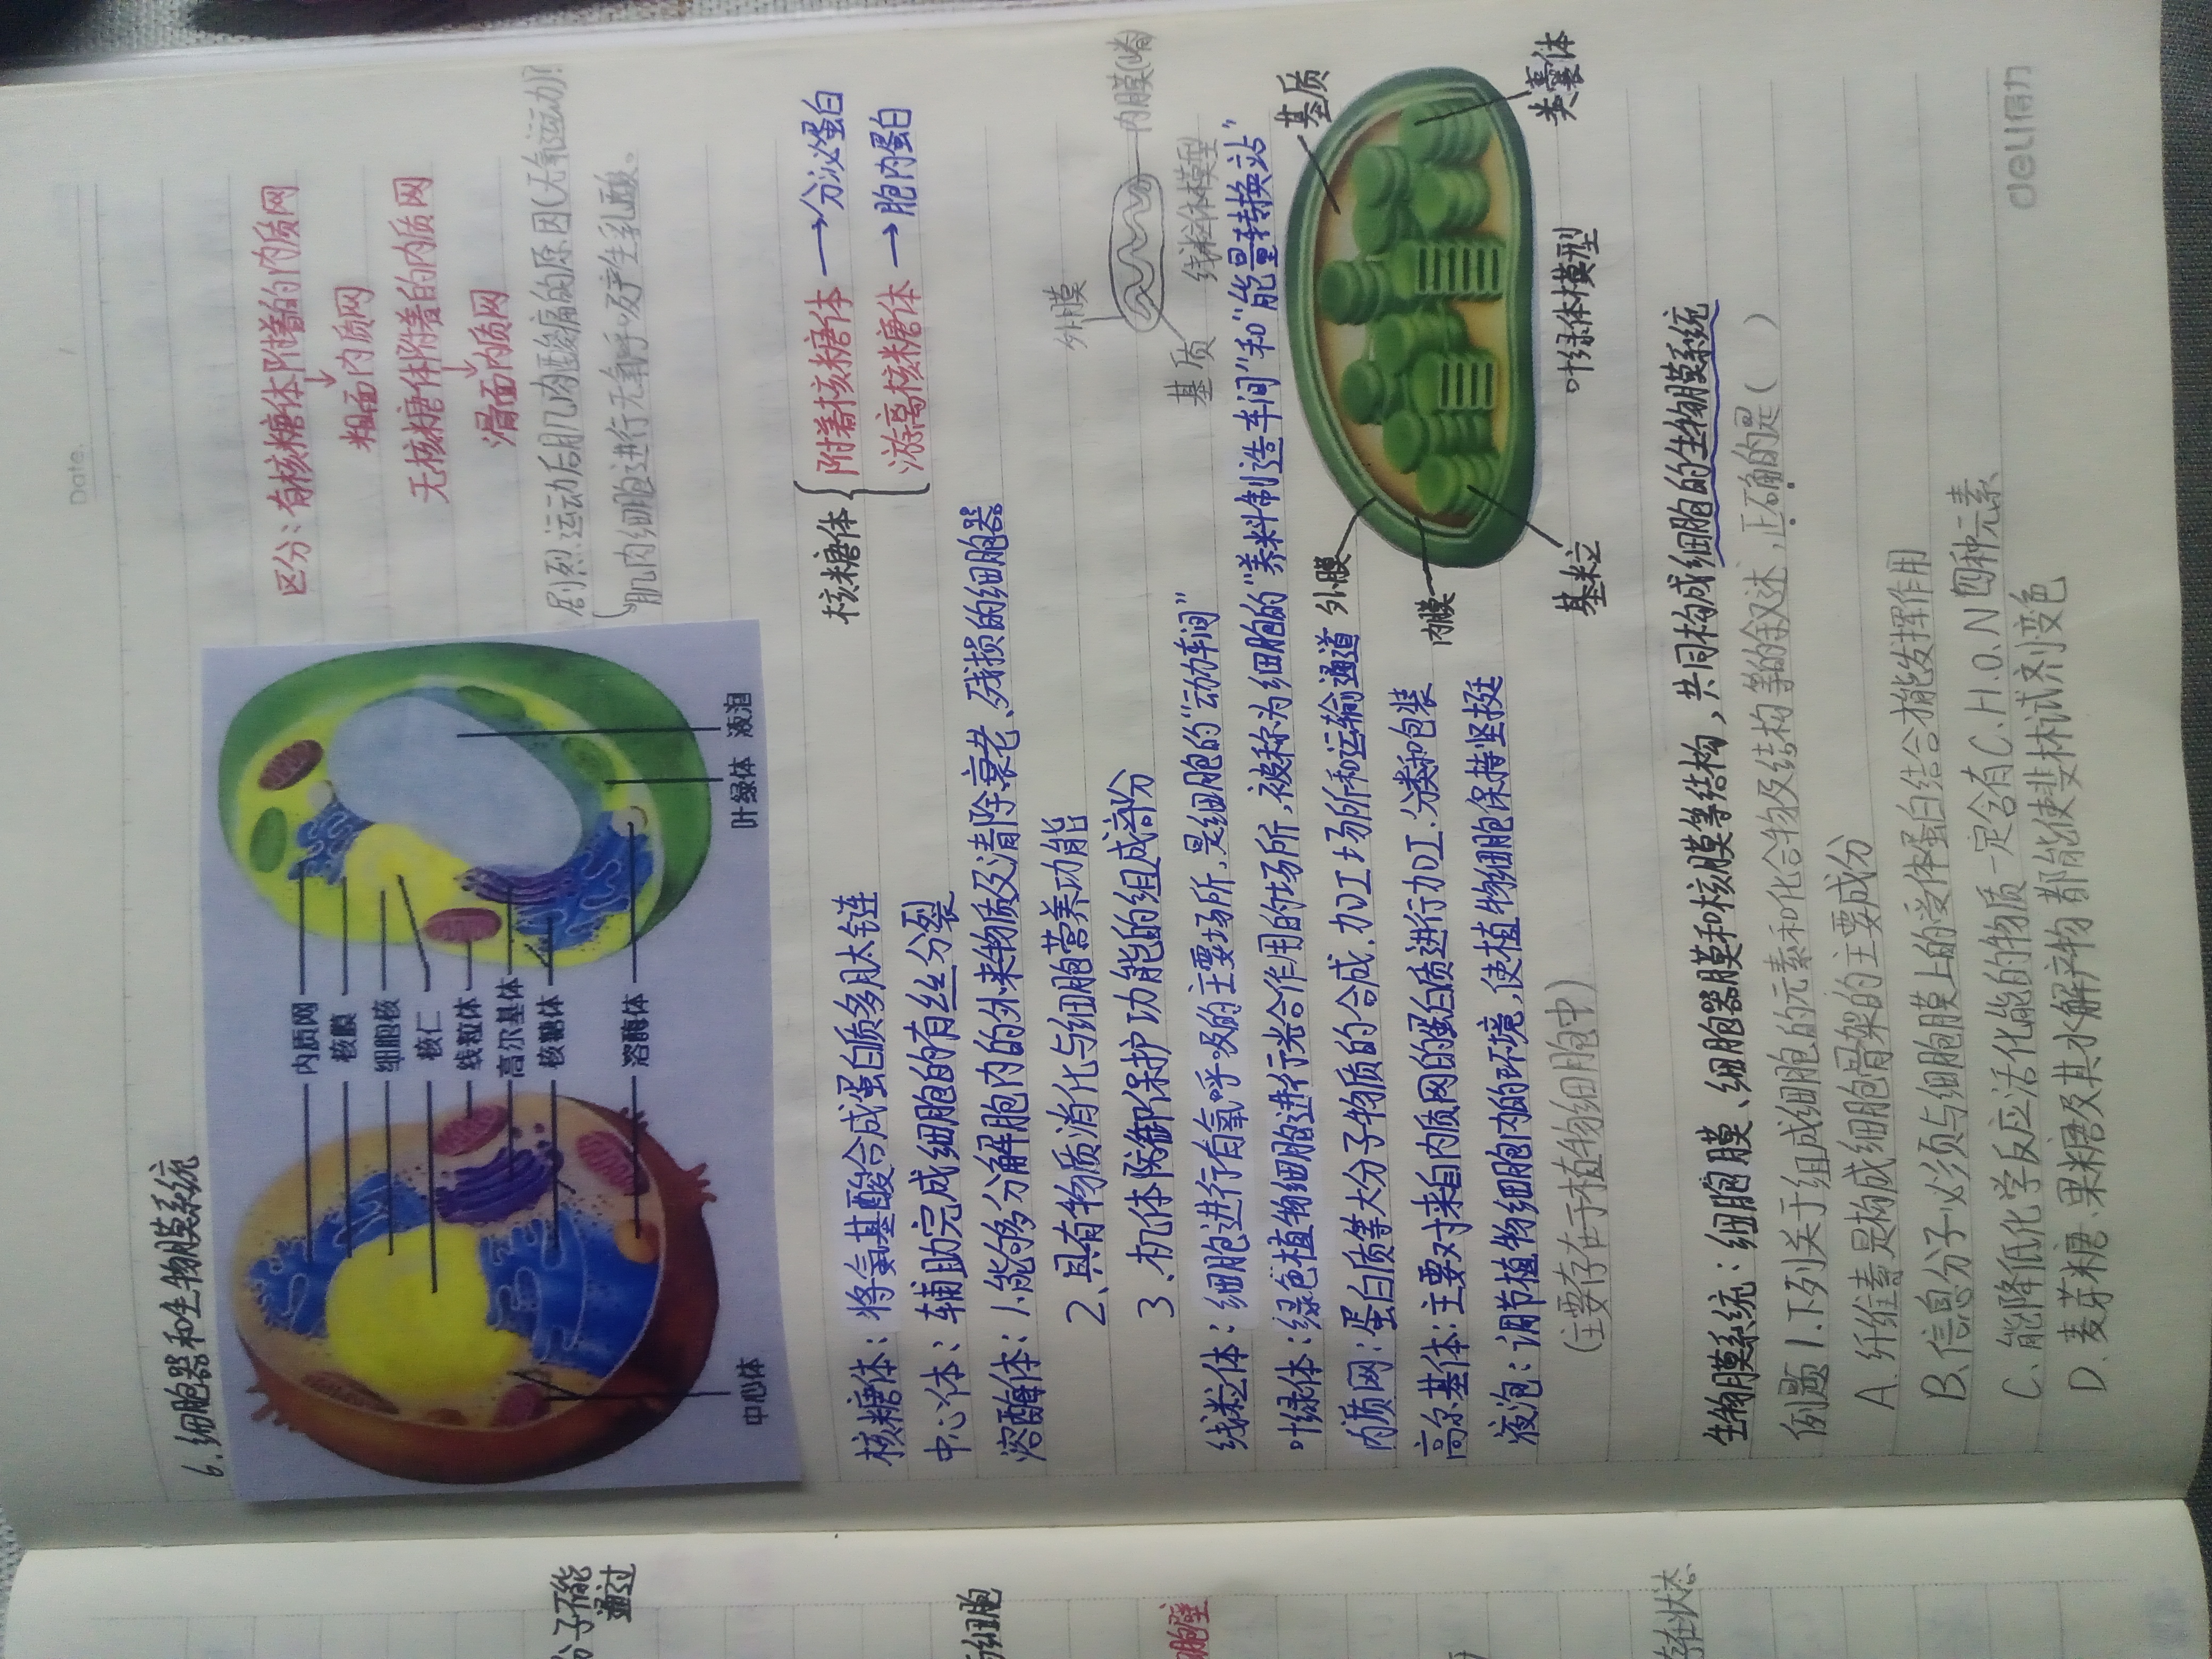 Date.
6.细胞器和生物膜系统
内质网
核膜
细胞核
核仁
线粒体
高尔基体
核糖体
溶酶体
中心体
叶绿体
液泡
区分：有核糖体附着的内质网
↓
粗面内质网
无核糖体附着的内质网
↓
滑面内质网
剧烈运动后肌肉酸痛的原因(无氧运动)?
肌肉细胞进行无氧呼吸产生乳酸、
核糖体：将氨基酸合成蛋白质多肽链
中心体：辅助完成细胞的有丝分裂
溶酶体：1.能够分解胞内的外来物质及清除衰老、残损的细胞器
2、具有物质消化与细胞营养功能
3、机体防御保护功能的组成部分
核糖体
附着核糖体→分泌蛋白
游离核糖体→胞内蛋白
外膜
内膜(嵴)
基质
线粒体模型
线粒体：细胞进行有氧呼吸的主要场所，是细胞的“动力车间”
叶绿体：绿色植物细胞进行光合作用的场所，被称为细胞的“养料制造车间”和“能量转换站”
内质网：蛋白质等大分子物质的合成、加工场所和运输通道
高尔基体：主要对来自内质网的蛋白质进行加工、分类和包装
液泡：调节植物细胞内的环境，使植物细胞保持坚挺
(主要存在于植物细胞中)
外膜
内膜
基粒
基质
类囊体
叶绿体模型
生物膜系统：细胞膜、细胞器膜和核膜等结构，共同构成细胞的生物膜系统
例题1.下列关于组成细胞的元素和化合物及结构等的叙述，正确的是( )
A.纤维素是构成细胞骨架的主要成分
B.信息分子必须与细胞膜上的受体蛋白结合才能发挥作用
C.能降低化学反应活化能的物质一定含有C.H.O.N四种元素
D.麦芽糖、果糖及其水解产物都能使斐林试剂变色
deli得力
分子不能
通过
细胞
胞壁
存在状态